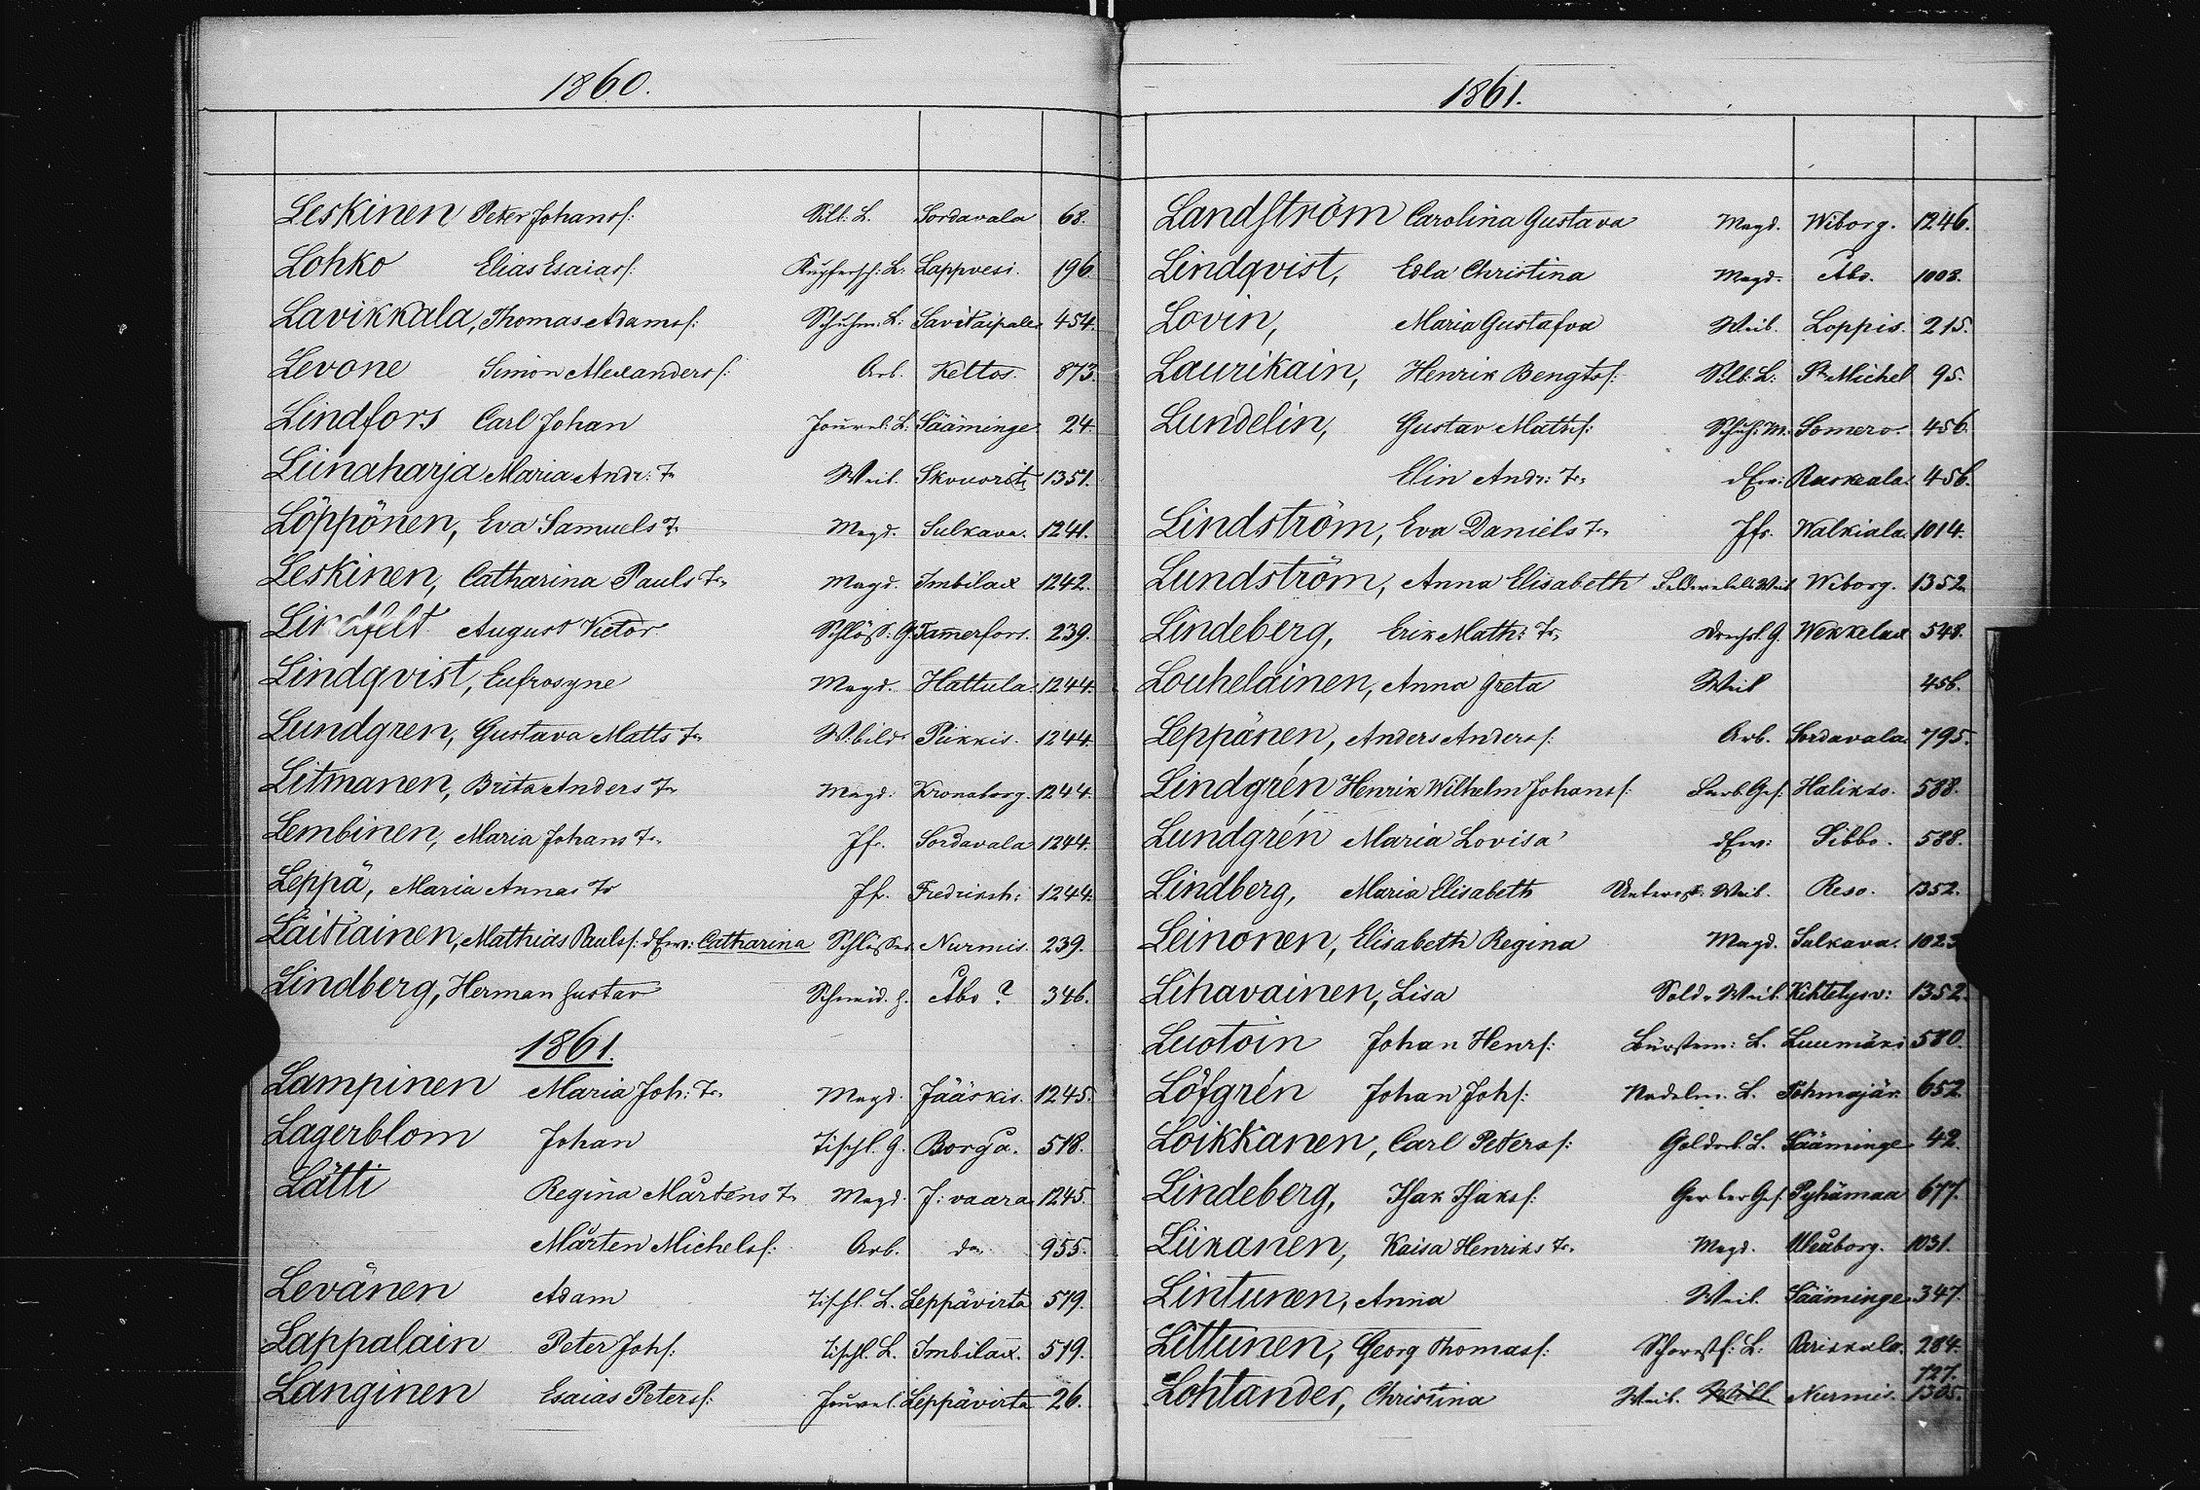 1860.
Leskinen Peter Johanss: Slb: L. Sordavala 68.
Lohko Elias Esaiass: Kupfersch: L. Lappvesi. 196
Lavikkala, Thomas Adamss: Schuhm: L. Savitaipale 454.
Levone Simon Alexanderss: Arb. Keltos. 873.
Lindfors Carl Johan Jouvel: L. Sääminge 24.
Liinaharja Maria Andr: Tr Weib. Skvuorits 1351.
Löppönen, Eva Samuels Tr Magd. Sulkava. 1241.
Leskinen, Catharina Pauls Tr. Magd. Imbilax 1242.
Lindfelt August Victor Schlöss: G. Tammerfors. 239.
Lindqvist, Eufrosyne Magd. Hattula. 1244.
Lundgren, Gustava Matts Tr Piikkis. 1244.
Litmanen, Brita Anders Tr Magd. Kronoborg. 1244.
Lembinen, Maria Johans Tr. Jfr. Sordavala 1244.
Leppä, Maria Annas Tr Jfr. Fredriksh: 1244.
Läitiäinen, Mathias Paulss: dEw: Catharina Schlösser. Nurmis. 239.
Lindberg, Herman Gustav Schneid. G. Åbo ? 346.
1861.
Lampinen Maria Joh: Tr. Magd. Jääskis. 1245.
Lagerblom Johan Tischl. G. Borgå. 518.
Lätti Regina Mårtens Tr Magd. J: vaara 1245.
Mårten Michelss: Arb. do 955.
Levänen Adam Tischl. L. Leppävirta 519.
Lappalain Peter Johs: Tischl. L. Imbilax. 519.
Langinen Esaias Peterss: Jouvel. Leppävirta 26.
1861.
Landström Carolina Gustava Magd. Wiborg. 1246.
Lindqvist, Edla Christina Magd. Åbo. 1008.
Lovin, Maria Gustafva Weib. Loppis. 215.
Laurikain, Henrik Bengtss: Slb: L: St Michel 95.
Lundelin, Gustav Mathss: Schuh: M. Somero. 456.
Elin Andr: Tr. dEw: Ruskeala. 456.
Lindström, Eva Daniels Tr. Jfr. Walkiala. 1014.
Lundström, Anna Elisabeth Feldwebels Weib Wiborg. 1352.
Lindeberg, Erik Math: Tr. Drechsl. G. Wekkelax 548.
Louheläinen, Anna Greta Weib 456.
Leppänen, Anders Anderss: Arb. Sordavala. 795.
Lindgrén Henrik Wilhelm Johanss: Färb. Ges: Halikko. 588.
Lundgrén Maria Lovisa dEw: Sibbo. 588.
Lindberg, Maria Elisabeth Unteroff. Weib. Reso. 1352.
Leinonen, Elisabeth Regina Magd. Sulkava. 1023
Lihavainen, Lisa Sold. Weib. Kihtelysv: 1352.
Luotoin Johan Henrs: Bürstenm: L. Luumäki 580.
Löfgrén Johan Johs: Nadelm. L. Tohmajär. 652.
Loikkanen, Carl Peterss: Goldarb. L. Sääminge 42.
Lindeberg, Isak Isakss: Gerber Ges. Pyhämaa 677.
Liikanen, Kaisa Henriks Tr. Magd. Uleåborg. 1031.
Lintunen, Anna Weib. Sääminge 347.
Littunen, Georg Thomass: Schornstf: L: Parikkala. 284.
Lohtander, Christina Weib. Nurmis. 727. 1305.